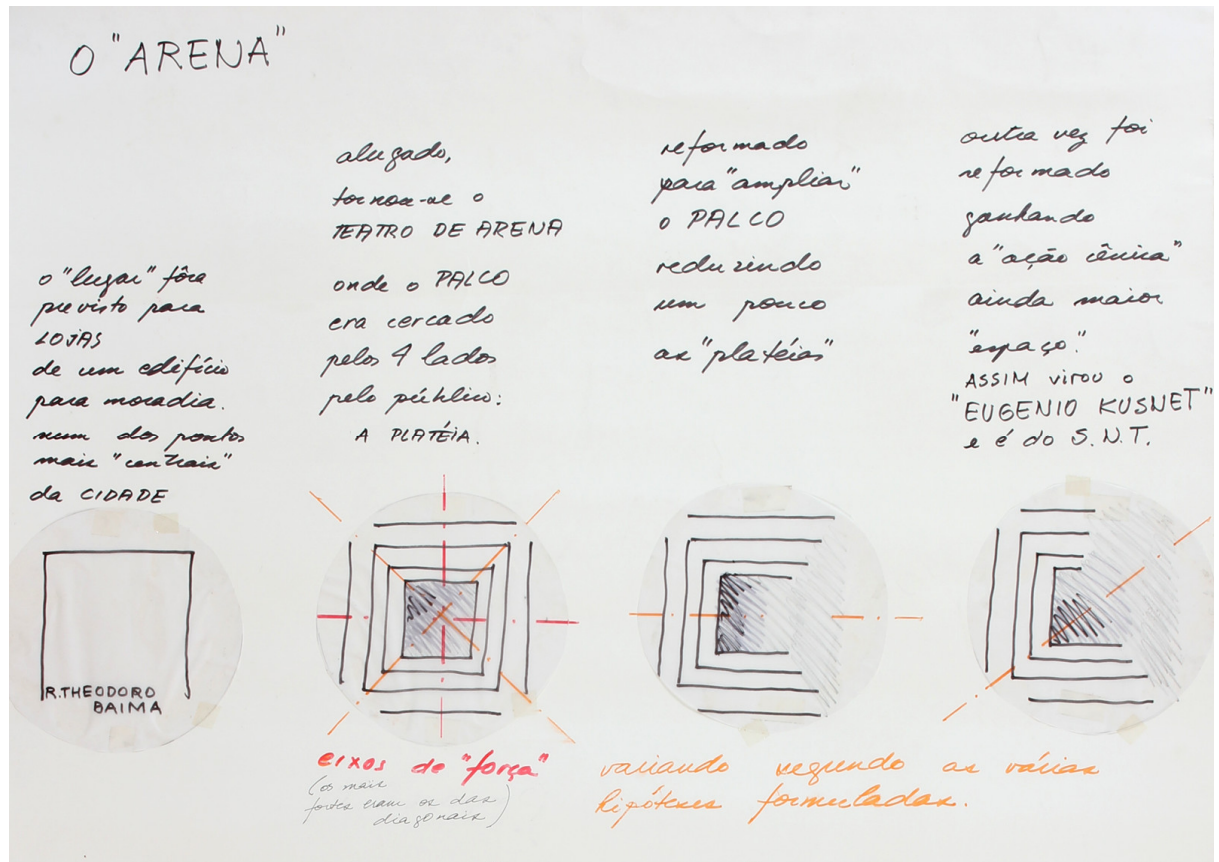 O "ARENA"
o "lugar" fôra
previsto para
LOJAS
de um edifício
para moradia.
num dos pontos
mais "centrais"
da CIDADE
R.THEODORO
BAIMA
alugado,
tornou-se o
TEATRO DE ARENA
onde o PALCO
era cercado
pelos 4 lados
pelo público:
A PLATÉIA.
reformado
para "ampliar"
o PALCO
reduzindo
um pouco
as "platéias"
outra vez foi
reformado
ganhando
a "ação cênica"
ainda maior
"espaço".
ASSIM virou o
"EUGENIO KUSNET"
e é do S.N.T.
eixos de "força"
(os mais
fortes eram os das
diagonais)
variando segundo as várias
hipóteses formuladas.